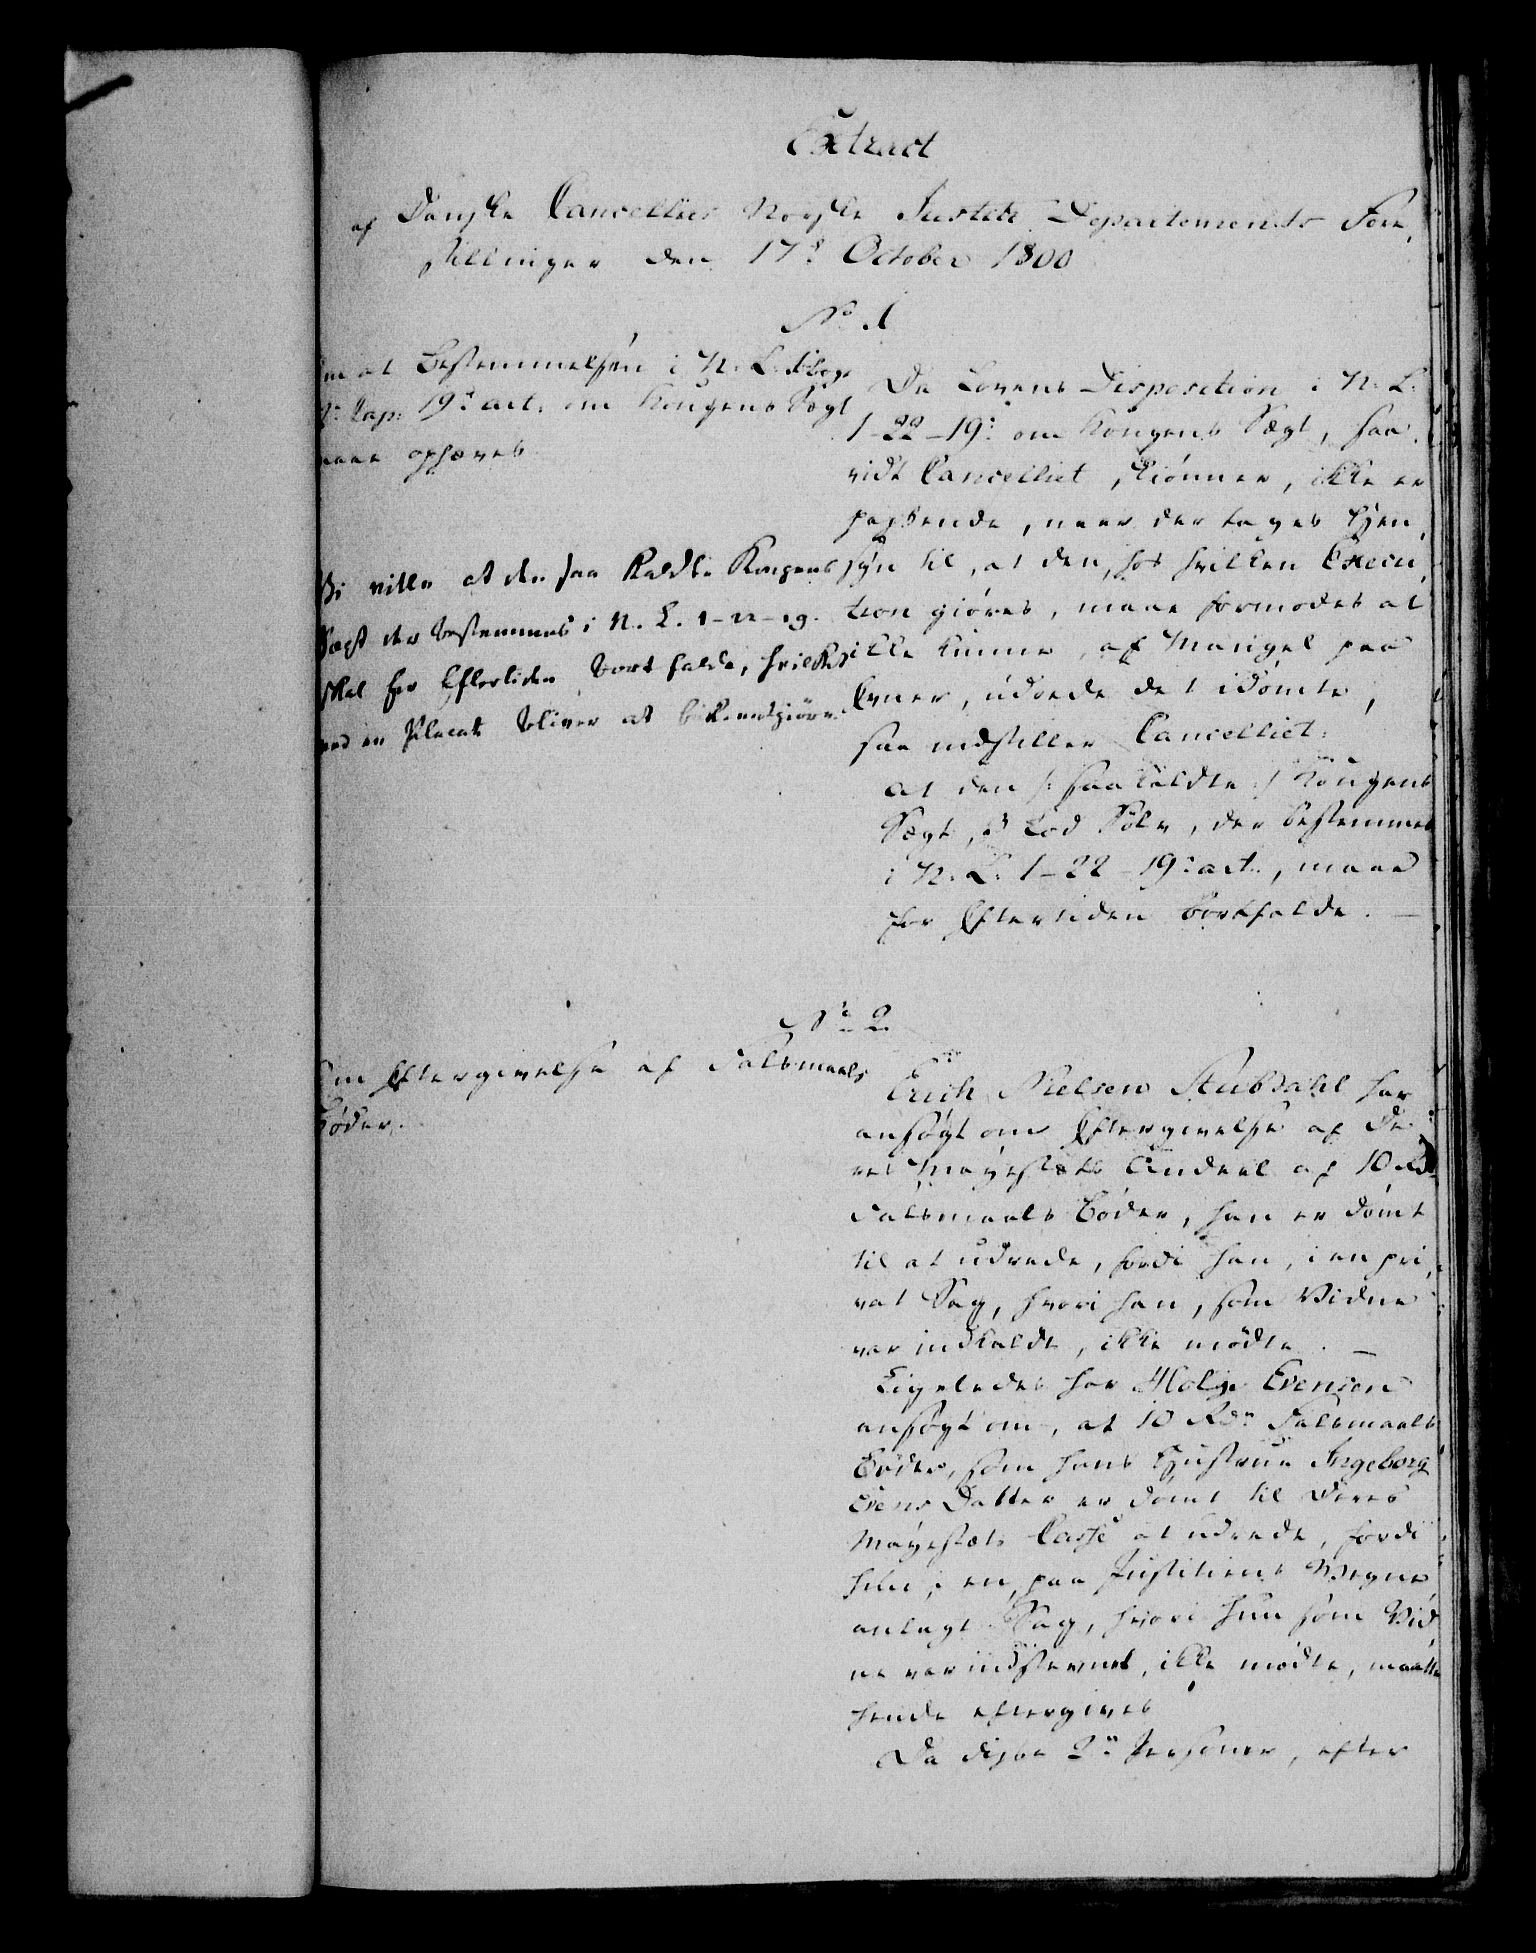 Extract
af Danske Cancellies Norske Justits Departements Fore,
stillinger den 17d October 1800
No 1
at Bestemmelsen i N. L. 1 bog
Cap: 19d art. om Kongens Vægt
maae ophæves
Vi ville at den saa kaldte Kongens
Vægt der bestemmes i N. L. 1-22-19.
skal for Eftertiden bortfalde, hvilket
ved en Placat bliver at bekiendtgiøre.
Da Lovens Disposition i N. L.
1-22-19: om Kongens Vægt, saa
vidt Cancelliet skiønner, ikke er
passende, naar der tages Hen,
syn til, at den, hos hvilken Execu,
tion giøres, maae formodes at
ikke kunne, af Mangel paa
Evner, udrede det idømte,
saa indstiller Cancelliet:
at den /: saakaldte :/ Kongens
Vægt, Lod Sølv, der bestemmes
i N. L. 1-22-19: art., maae
for Eftertiden bortfalde. —
No 2
Om Eftergivelse af Falsmaals
Bøder.
Erich Nielsen Stubdahl har
ansøgt om Eftergivelse af De
res Mayestæts Andeel af 10 Rd
Falsmaals Bøder, han er dømt
til at udrede, fordi han, i en pri,
vat Sag, hvori han, som Vidne
var indkaldt, ikke mødte. —
Ligeledes har Holge Evensen
ansøgt om, at 10 Rdr Falsmaals
Bøder, som hans Hustrue Ingeborg
Evens Datter er dømt til Deres
Mayestæts Casse at udrede, fordi
hun, i en paa Justitiens Vegne
anlagt Sag, hvori hun som Vid,
ne var indstevnet, ikke mødte, maatte
hende eftergives
Da disse 2de Personer, efter